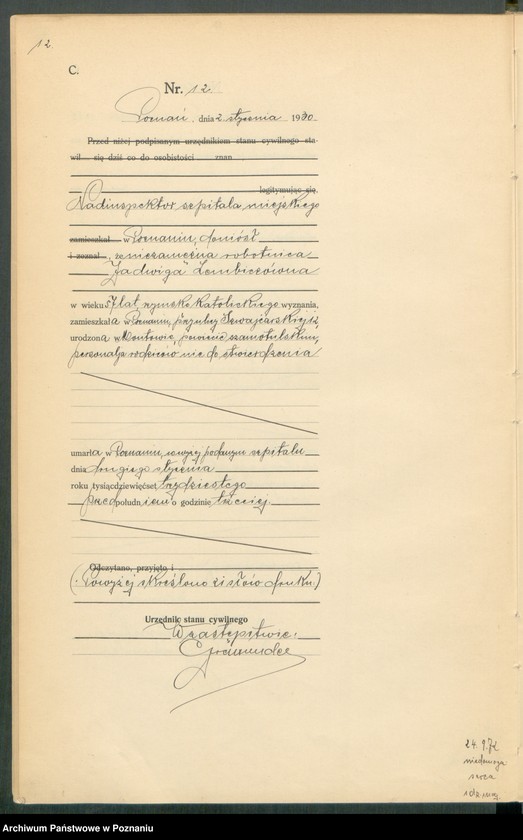 12.
C.
Nr. 12.
Poznań, dnia 2 stycznia 1930
Przed niżej podpisanym urzędnikiem stanu cywilnego sta-
wił się dziś co do osobistości znan
legitymując się
Nadinspektor szpitala miejskiego
zamieszkał w Poznaniu, doniósł
i zeznał, że niezamężna robotnica
Jadwiga
w wieku 57 lat, rzymsko katolickiego wyznania,
zamieszkała w Poznaniu, przy ulicy Szwajcarskiej
urodzona w powiecie szamotulskim,
personalja rodziców nie do stwierdzenia
umarła w Poznaniu, w wyżej podanym szpitalu
dnia drugiego stycznia
roku tysiącdziewięćset trzydziestego
przed południem o godzinie trzeciej.
Odczytano, przyjęto i
(: Powyżej skreślono słów druku.)
Urzędnik stanu cywilnego
W zastępstwie:
24.9.
Archiwum Państwowe w Poznaniu